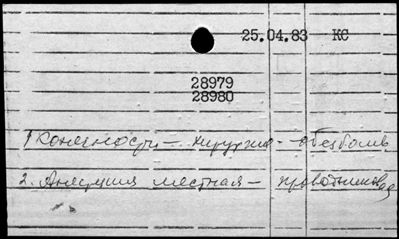 25.04.83 КС
28979
28980
1 Конечности — хирургия — обезболив
2. Анестезия местная — проводниковая